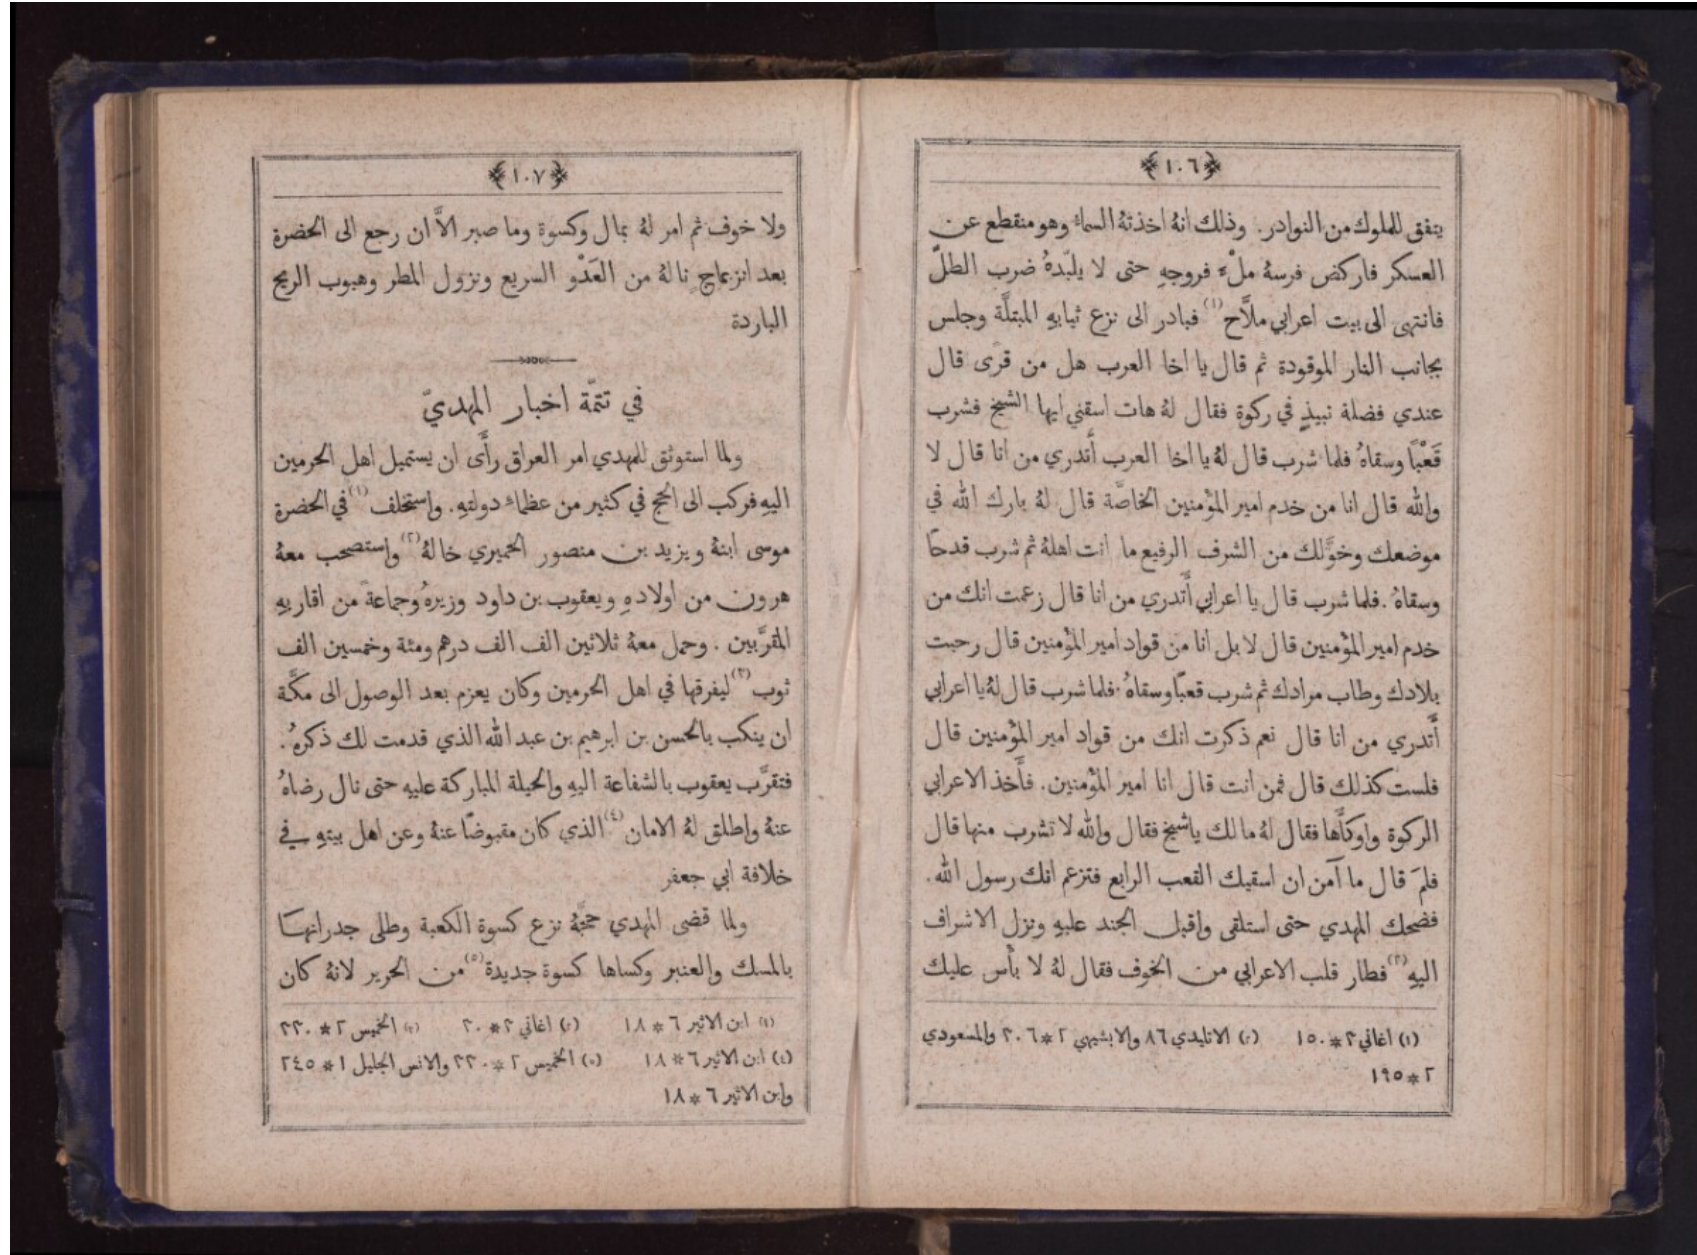 ﴿١٠٦﴾
يتفق للملوك من النوادر. وذلك انهُ اخذتهُ السماء وهو منقطع عن
العسكر فاركض فرسهُ ملْء فروجهِ حتى لا يلبّدهُ ضرب الطلّ
فانتهى الى بيت اعرابي ملاَّح(١) فبادر الى نزع ثيابهِ المبتلَّة وجلس
بجانب النار الموقودة ثم قال يا اخا العرب هل من قرًى قال
عندي فضلة نبيذٍ في ركوة فقال لهُ هات اسقني ايها الشيخ فشرب
قَعْبًا وسقاهُ فلما شرب قال لهُ يا اخا العرب أَتدري من انا قال لا
والله قال انا من خدم امير المؤْمنين الخاصَّة قال لهُ بارك الله في
موضعك وخوَّلك من الشرف الرفيع ما انت اهلهُ ثم شرب قدحًا
وسقاهُ. فلما شرب قال يا اعرابي أَتدري من انا قال زعمت انك من
خدم امير المؤْمنين قال لا بل انا من قواد امير المؤْمنين قال رحبت
بلادك وطاب مرادك ثم شرب قعبًا وسقاهُ. فلما شرب قال لهُ يا اعرابي
أَتدري من انا قال نعم ذكرت انك من قواد امير المؤْمنين قال
فلست كذلك قال فمن انت قال انا امير المؤْمنين. فأَخذ الاعرابي
الركوة واوكأَها فقال لهُ ما لك ياشيخ فقال والله لا تشرب منها قال
فلمَ قال ما آمن ان اسقيك القعب الرابع فتزعم انك رسول الله.
فضحك المهدي حتى استلقى واقبل الجند عليهِ ونزل الاشراف
اليهِ(٢) فطار قلب الاعرابي من الخوف فقال لهُ لا بأْس عليك
(١) اغاني ٣*١٥٠ (٢) الاتليدي ٨٦ والابشيهي ٢*٢٠٦ والمسعودي
٢*١٩٥
﴿١٠٧﴾
ولا خوف ثم امر لهُ بمال وكسوة وما صبر الاَّ ان رجع الى الحضرة
بعد انزعاجٍ نالهُ من العَدْو السريع ونزول المطر وهبوب الريح
الباردة
في تتمّة اخبار المهديّ
ولما استوثق للمهدي امر العراق رأَى ان يستميل اهل الحرمين
اليهِ فركب الى الحج في كثير من عظماء دولتهِ. واستخلف(١) في الحضرة
موسى ابنهُ ويزيد بن منصور الحميري خالهُ(٢) واستصحب معهُ
هرون من اولادهِ ويعقوب بن داود وزيرهُ وجماعة من اقاربهِ
المقرَّبين. وحمل معهُ ثلاثين الف الف درهم ومئة وخمسين الف
ثوب(٣) ليفرقها في اهل الحرمين وكان يعزم بعد الوصول الى مكَّة
ان ينكب بالحسن بن ابرهيم بن عبد الله الذي قدمت لك ذكرهُ.
فتقرَّب يعقوب بالشفاعة اليهِ والحيلة المباركة عليهِ حتى نال رضاهُ
عنهُ واطلق لهُ الامان(٤) الذي كان مقبوضًا عنهُ وعن اهل بيتهِ في
خلافة ابي جعفر
ولما قضى المهدي حجَّهُ نزع كسوة الكعبة وطلى جدرانها
بالمسك والعنبر وكساها كسوة جديدة(٥) من الحرير لانهُ كان
(١) ابن الاثير ٦*١٨ (٢) اغاني ٣*٢٠ (٣) الخميس ٢*٣٣٠
(٤) ابن الاثير ٦*١٨ (٥) الخميس ٢*٣٣٠ والانس الجليل ١*٢٤٥
وابن الاثير ٦*١٨